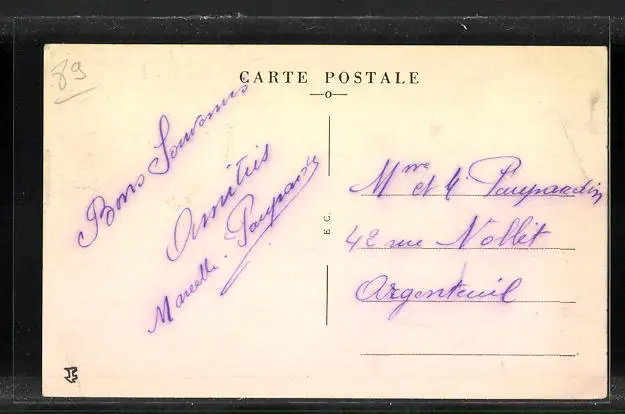 89
CARTE POSTALE
Bons Souvenirs
Amitiés
Marcelle. Paupardin
E C.
Mme et M. Paupardin
42 rue Nollet
Argenteuil